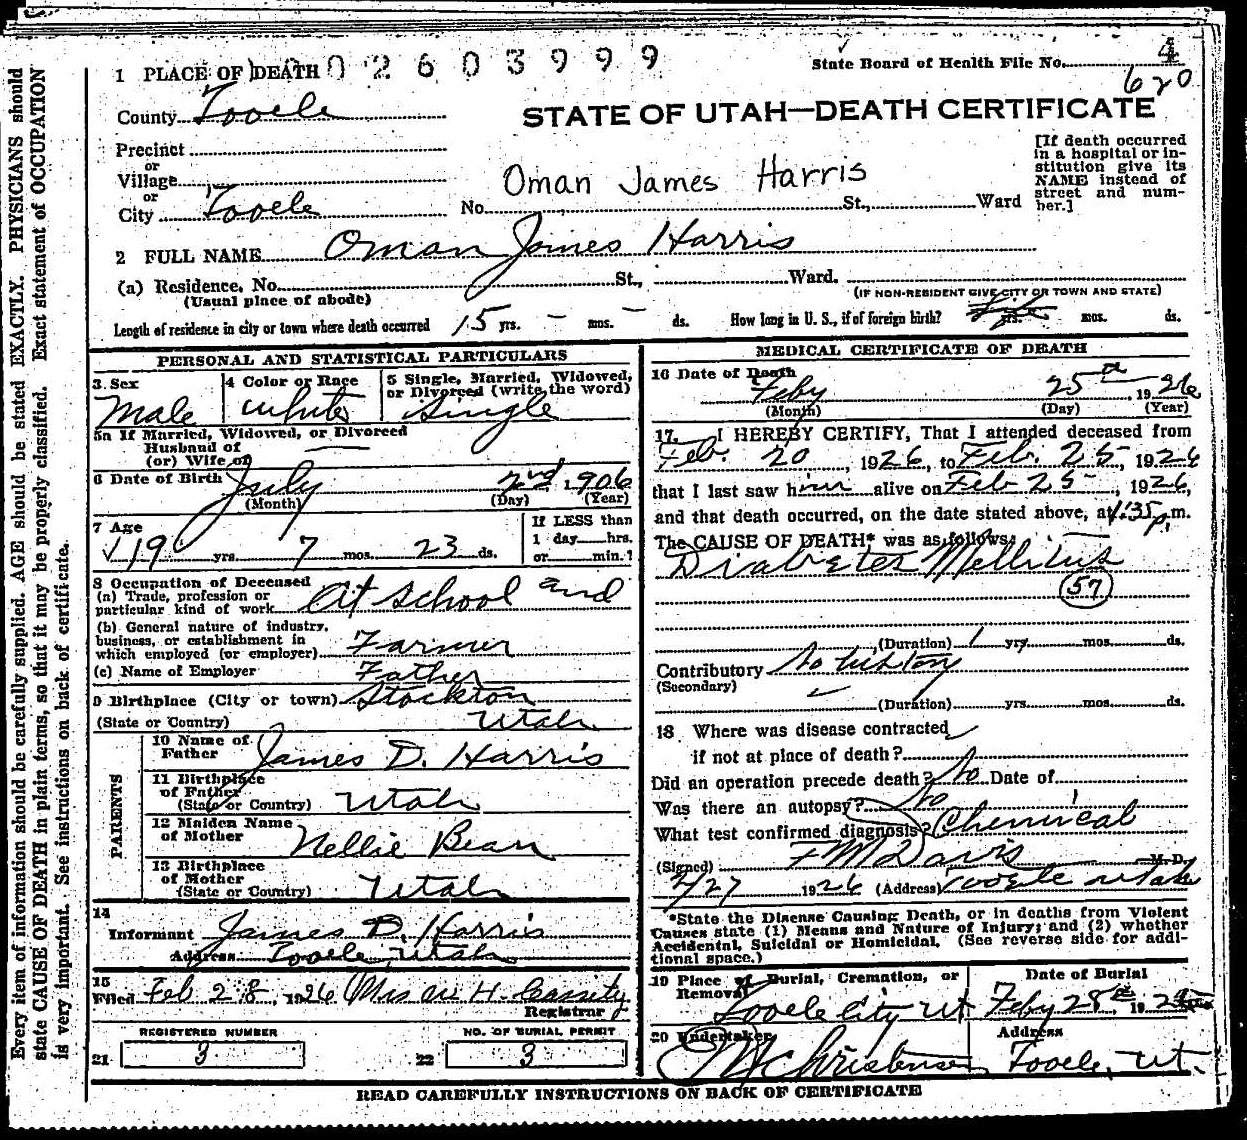 1 PLACE OF DEATH 0 2 6 0 3 9 9 9
State Board of Health File No. 4
620
County Tooele
STATE OF UTAH—DEATH CERTIFICATE
Precinct
or
Village
or
City Tooele
[If death occurred in a hospital or in-
stitution give its
NAME instead of
street and num-
ber.]
Oman James Harris
No. St., Ward
2 FULL NAME Oman James Harris
(a) Residence. No. St., Ward.
(Usual place of abode)
(IF NON-RESIDENT GIVE CITY OR TOWN AND STATE)
Length of residence in city or town where death occurred 15 yrs. — mos. — ds. How long in U. S., if of foreign birth? yrs. mos. ds.
PERSONAL AND STATISTICAL PARTICULARS
3 Sex
Male
4 Color or Race
White
5 Single, Married, Widowed,
or Divorced (write the word)
Single
5a If Married, Widowed, or Divorced
Husband of
(or) Wife of
6 Date of Birth July 2nd, 1906
(Month) (Day) (Year)
7 Age
19 yrs. 7 mos. 23 ds.
If LESS than
1 day hrs.
or min.?
8 Occupation of Deceased
(a) Trade, profession or
particular kind of work At School and
(b) General nature of industry,
business, or establishment in
which employed (or employer) Farmer
(c) Name of Employer Father
9 Birthplace (City or town) Stockton
(State or Country) Utah
PARENTS
10 Name of
Father James D. Harris
11 Birthplace
of Father
(State or Country) Utah
12 Maiden Name
of Mother Nellie Bean
13 Birthplace
of Mother
(State or Country) Utah
14
Informant James D. Harris
Address Tooele, Utah
15
Filed Feb 28, 1926 Mrs H. Cassity
Registrar
REGISTERED NUMBER
21 3
NO. OF BURIAL PERMIT
22 3
MEDICAL CERTIFICATE OF DEATH
16 Date of Death
Feby 25th 1926
(Month) (Day) (Year)
17. I HEREBY CERTIFY, That I attended deceased from
Feb. 20, 1926, to Feb. 25, 1926
that I last saw him alive on Feb 25, 1926,
and that death occurred, on the date stated above, at 1:35 p.m.
The CAUSE OF DEATH* was as follows:
Diabetes Mellitus
57
(Duration) 1 yrs mos. ds.
Contributory
(Secondary)
(Duration) yrs. mos. ds.
18 Where was disease contracted
if not at place of death?
Did an operation precede death? No Date of
Was there an autopsy? No
What test confirmed diagnosis? Chemical
(Signed) F M Davis M. D.
2/27 1926 (Address) Tooele Utah
*State the Disease Causing Death, or in deaths from Violent
Causes state (1) Means and Nature of Injury; and (2) whether
Accidental, Suicidal or Homicidal. (See reverse side for addi-
tional space.)
19 Place of Burial, Cremation, or
Removal
Tooele City Ut
Date of Burial
Feby 28th, 192
20 Undertaker
Christensen
Address
Tooele, Ut.
READ CAREFULLY INSTRUCTIONS ON BACK OF CERTIFICATE
Every item of information should be carefully supplied. AGE should be stated EXACTLY. PHYSICIANS should
state CAUSE OF DEATH in plain terms, so that it may be properly classified. Exact statement of OCCUPATION
is very important. See instructions on back of certificate.